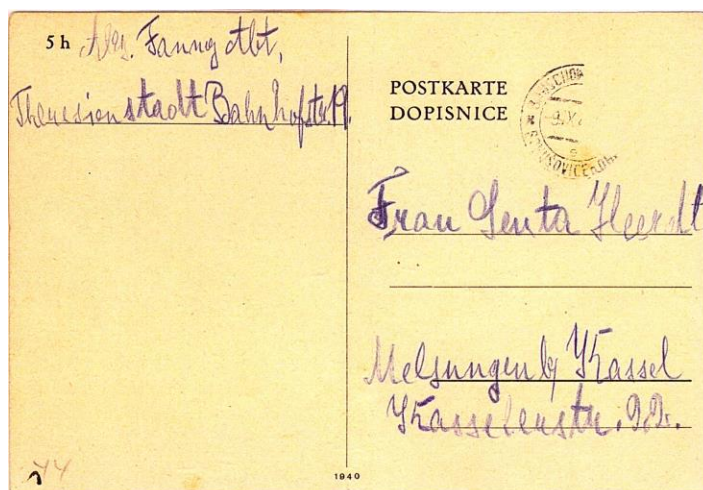 5 h Abs. Fanny Abt,
Theresienstadt Bahnhofstr. 19.
POSTKARTE
DOPISNICE
Frau Senta Heerdt
Melsungen b/ Kassel
Kasselerstr. 22.
44
1940